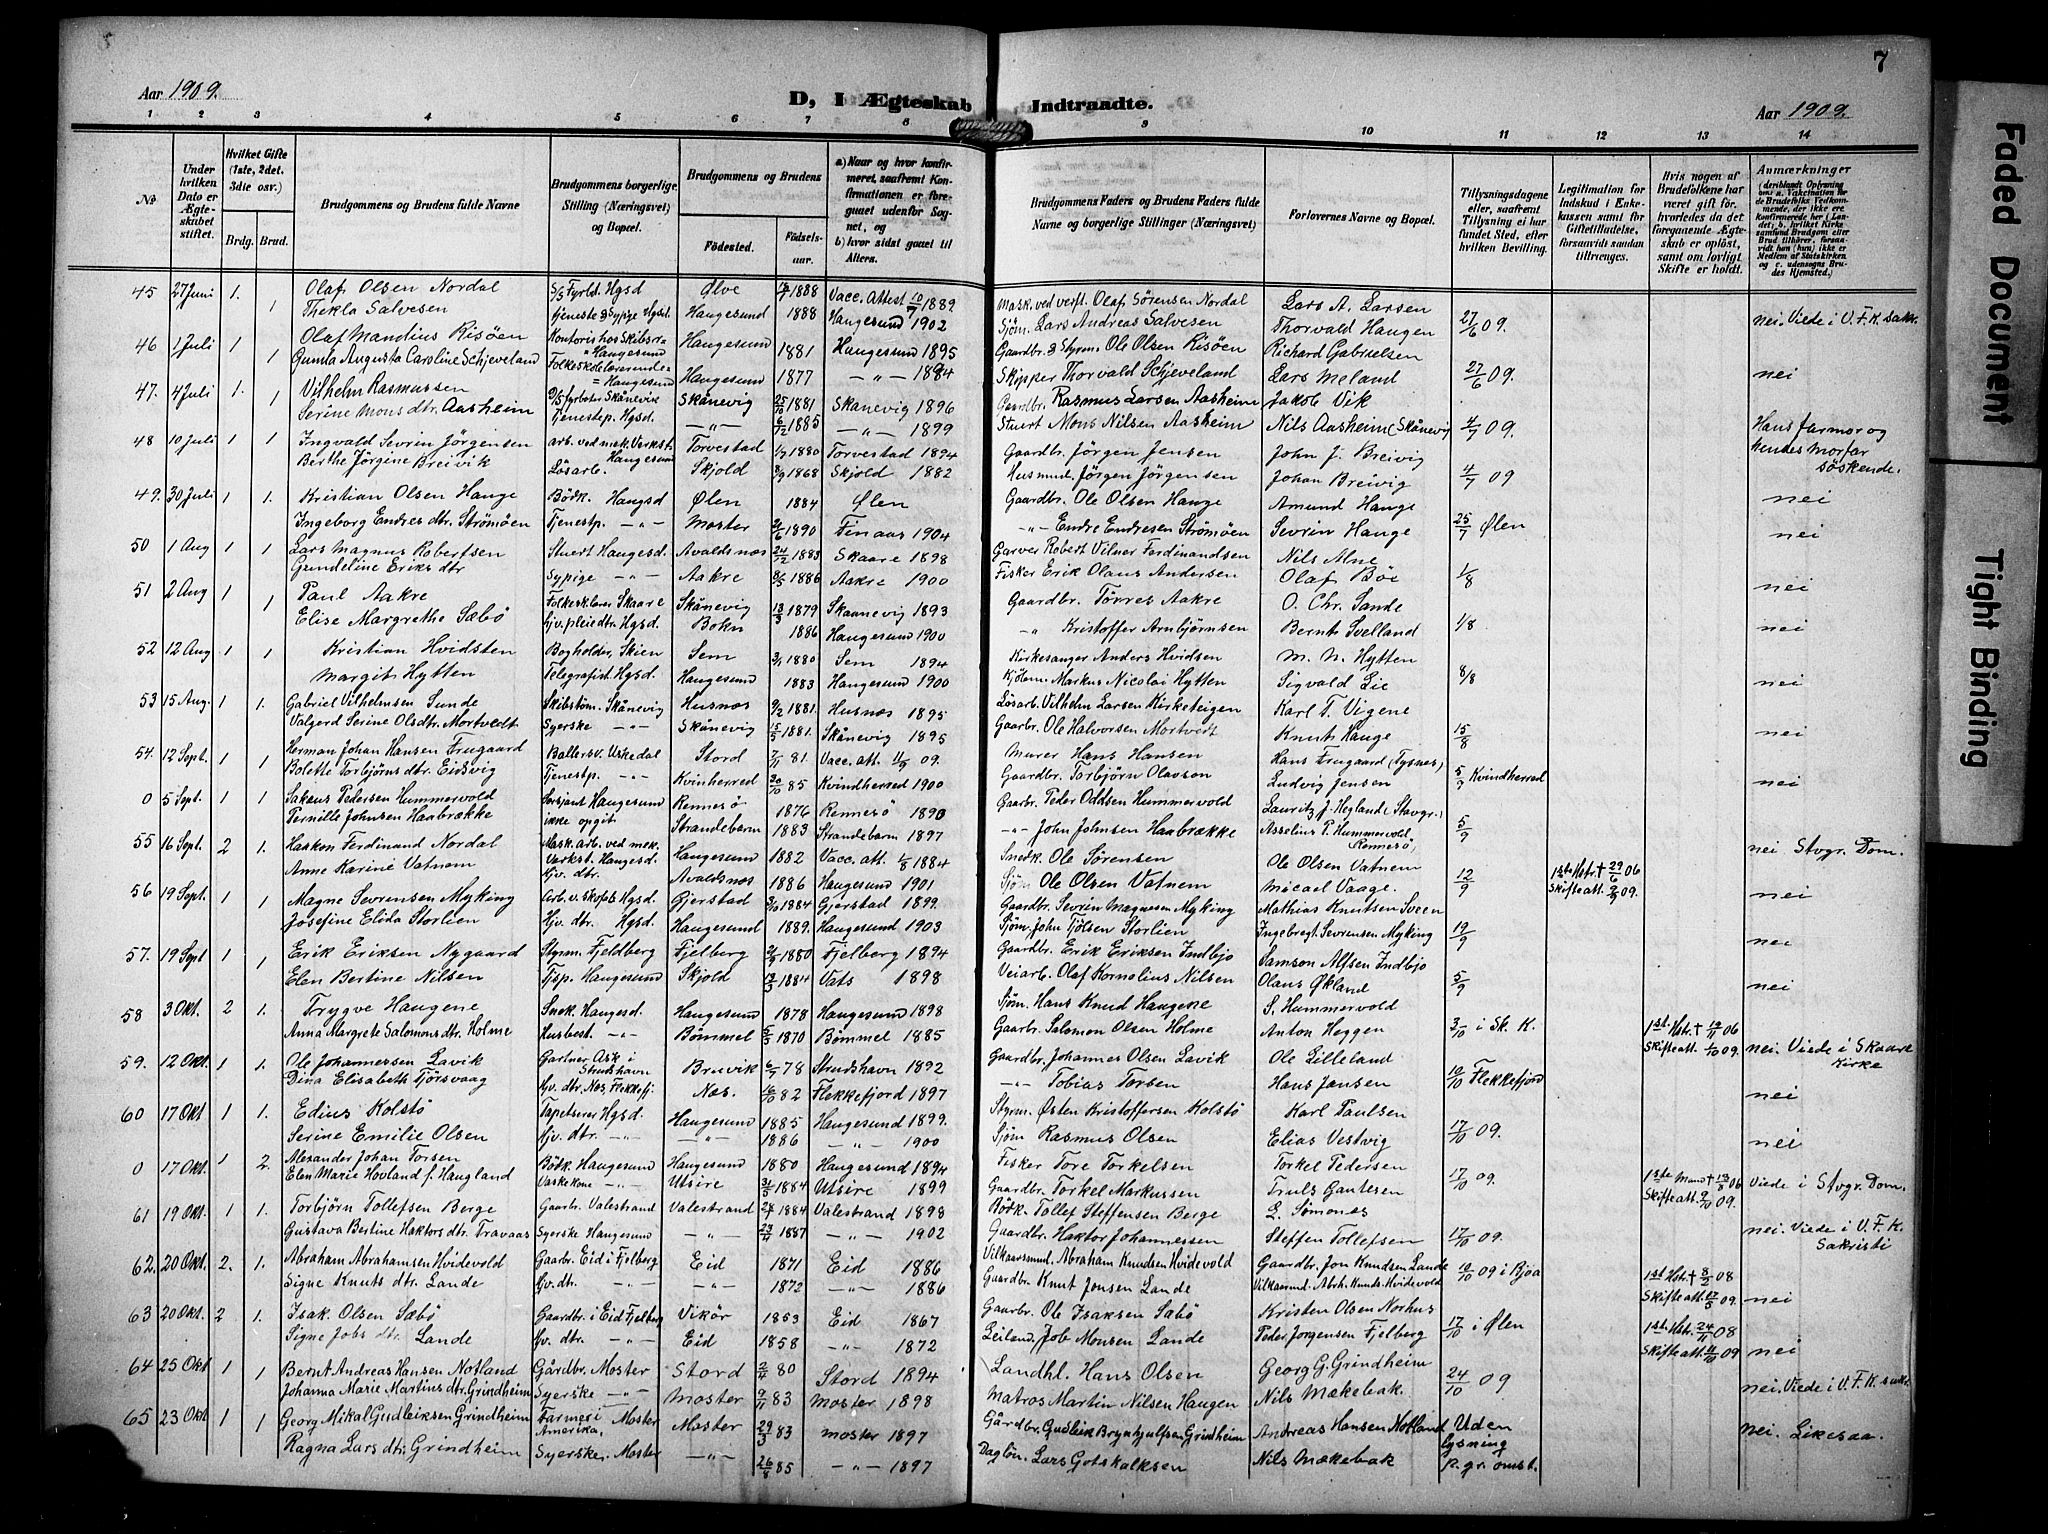 7
Aar 1909.
D, I Ægteskab Indtraadte.
Aar 1909.
1 2 3 4 5 6 7 8 9 10 11 12 13 14
No
Under hvilken Dato er Ægteskabet stiftet.
Hvilket Gifte (1ste, 2det, 3die osv.)
Brdg. Brud.
Brudgommens og Brudens fulde Navne
Brudgommens borgerlige Stilling (Næringsvei) og Bopæl.
Brudgommens og Brudens
Fødested. Fødselsaar.
a) Naar og hvor konfirmeret, saafremt Konfirmationen er foregaaet udenfor Sognet, og
b) hvor sidst gaaet til Alters.
Brudgommens Faders og Brudens Faders fulde Navne og borgerlige Stillinger (Næringsvei)
Forlovernes Navne og Bopæl.
Tillysningsdagene eller, saafremt Tillysning ei har fundet Sted, efter hvilken Bevilling.
Legitimation for Indskud i Enkekassen samt for Giftetilladelse, forsaavidt saadan tiltrænges.
Hvis nogen af Brudefolkene har været gift før, hvorledes da det foregaaende Ægteskab er opløst, samt om lovligt Skifte er holdt.
Anmærkninger
45 27 Juni 1. Olaf Olsen Nordal S/S Fyrbd. Hgsd Ølve 1888 Vacc. Attest 10/7 1889 Mask. ved verft. Olaf Sørensen Nordal Lars A. Larsen
1 Thekla Salvesen Tjeneste & Sypige Hgsd Haugesund 1888 Haugesund 1902 Sjøm. Lars Andreas Salvesen Thorvald Haugen 27/6 09. nei. Viede i V.F.K. sakr.
46 1 Juli 1 1 Olaf Mandius Risøen Kontoris hos Skibsr. Haugesund Haugesund 1881 Haugesund 1895 Gaardbr. & Styrm. Ole Olsen Risøen Richard Gabrielsen
Gunda Augusta Caroline Schjeveland Folkeskolelærerinde Haugesund Haugesund 1877 — " — 1884 Skipper Thorvald Schjeveland Lars Meland 27/6 09. nei
47. 4 Juli 1. 1 Vilhelm Rasmussen D/S fyrbøter Skånevik Skånevig 25/10 1881 Skånevig 1896 Gaardbr. Rasmus Larsen Aasheim Jakob Vik
Serine Mons dtr. Aasheim Tjenestep. Hgsd. — " — 6/12 1885 — " — 1899 Stuert Mons Nilsen Aasheim Nils Aasheim (Skånevig 4/7 09. Hans farmor og hendes morfar søskende.
48 10 Juli 1 1 Ingvald Sevrin Jörgensen arb. ved mek. Verkst. Haugesund Torvestad 1880 Torvestad 1894 Gaardbr. Jörgen Jensen John J. Breivig
Berthe Jörgine Breivik Løsarb. Skjold 1868 Skjold 1882 Husmnd. Jørgen Jørgensen Johan Breivig 4/7 09 nei
49. 30 Juli 1 1. Kristian Olsen Hauge Bødk. Haugsd Ølen 1884 Ølen Gaardbr. Ole Olsen Hauge Amund Hauge
Ingeborg Endres dtr. Strømøen Tjenestp. — " — Moster 1890 Finaas 1904 — " — Endre Endresen Strømøen Sevrin Hauge 25/7 Ølen nei
50 1 Aug 1 1 Lars Magnus Robertsen Stuert Haugesd. Avaldsnæs 24/2 1883 Skaare 1898 Garver Robert Vilner Ferdinandsen Nils Alne
Gundeline Eriks dtr Sypige — " — Aakre 8/5 1886 Aakre 1900 Fisker Erik Olaus Andersen Olaf Bøe 1/8 nei
51 2 Aug 1 1 Paul Aakre Folkesk.lærer Skaare Skånevig 13/3 1879 Skaanevig 1893 Gaardbr. Tørres Aakre O. Chr. Sande
Elise Margrethe Sæbø Hjv. pleiedtr. Hgsd. Bokn 1886 Haugesund 1900 — " Kristoffer Arnbjørnsen Bernt Svelland 1/8 nei
52 12 Aug 1 1 Kristian Hvidsten Bogholder, Skien Sem 1880 Sem 1894 Kirkesanger Anders Hvidsen M. N. Hytten
Margit Hytten Telegrafist Hgsd. Haugesund 1883 Haugesund 1900 Kjøbm. Markus Nicolai Hytten Sigvald Lie 8/8 nei
53 15 Aug. 1 1. Gabriel Vilhelmsen Sunde Skibstøm. Skånevig Husnæs 9/2 1881. Husnæs 1895 Løsarb. Vilhelm Larsen Kirketeigen Karl T. Vigene
Valgerd Serine Olsdtr. Mortvedt Syerske — " — Skånevig 15/5 1881. Skånevig 1895 Gaarbr. Ole Halvorsen Mortvedt Knut Hauge 15/8 nei
54. 12 Sept. 1 1 Herman Johan Hansen Frugaard Ballersv. Uskedal Stord 7/11 81. Vacc. att. 09. Murer Hans Hansen Hans Frugaard (Tysnes)
Bolette Torbjørns dtr. Eidsvig Tjenestp. — " — Kvinherred 30/10 85 Kvindherred 1900 Gaardbr. Torbjørn Olavson Ludvig Jensen 5/9 Kvindherred nei
0 5 Sept. 1 1 Sakeus Pedersen Hummervold Sersjant Haugesund Rennesø 1876 Rennesø 1890 Gaarbr. Peder Oddsen Hummervold Lauritz J. Hegland, Stavgr.
Pernille Johnsen Haabrække ikke opgit Strandebarm 1883 Strandebarm 1897 — " — John Johnsen Haabrække Asselius P. Hummervold Rennesø, 5/9 nei Stvgr. Dom.
55 16 Sept. 2 1. Haakon Ferdinand Nordal Mask. arb. ved mek. Verkst. Haugesd. Haugesund 1882 Vacc. att. 1/8 1884 Snedk. Ole Sørensen Ole Olsen Vatnem 1ste Hstr. † 29/6 06
Anne Karine Vatnem Hjv. dtr. Avaldsnæs 1886 Haugesund 1901 Sjøm. Ole Olsen Vatnem Micael Vaage. 12/9 Skifteatt. 09. nei
56 19 Sept. 1 1 Magne Sevrensen Myking Arb. v. skofab. Hgsd. Gjerstad 1884 Gjerstad 1899. Gaardbr. Sevrin Magnesen Myking Mathias Knutsen Sveen
Josefine Elida Storlien Hjv. dtr. Hgsd. Haugesund 1889. Haugesund 1903 Sjøm. John Tjølsen Storlien Ingebregt Sevrensen Myking 19/9 nei
57. 19 Sept 1 1 Erik Eriksen Nygaard Styrm. Fjeldberg Fjelberg 1880 Fjelberg 1894 Gaardbr. Erik Eriksen Indbjo Samson Alfsen Indbjo
Elen Bertine Nilsen Tjsp. Haugesund Skjold 13/3 1884 Vats 1898 Veiarb. Olaf Kornelius Nilsen Olaus Økland 5/9 nei
58 3 Okt. 2 1. Trygve Haugene Snek. Haugesd. Haugesund 1878 Haugesund 1898 Sjøm. Hans Knud Haugene S. Hummervold
Anna Margrete Salomons dtr. Holme Husbest. — " — Bømmel 1870 Bømmel 1885 Gaarbr. Salomon Olsen Holme Anton Heggen 3/10 i Sk. K. 1st. Hstr. † 06 Skifteatt. 1/10 09. nei. Viede i Skaare Kirke
59. 12 Okt. 1 1. Ole Johannessen Lavik Gartner Ask i Strudshavn Bruvik 78 Strudshavn 1892 Gaardbr. Johannes Olsen Lavik Ole Lilleland
Dina Elisabeth Tjörsvaag Hjv. dtr. Nes, Flekkefj. Næs. 16/10 82 Flekkefjord 1897 — " — Tobias Torsen Hans Jansen 10/10 Flekkefjord nei
60 17 Okt 1 1. Edius Kolstø Tapetserer Hgsd. Haugesund 1885 Haugesund 1899. Styrm. Østen Kristoffersen Kolstø Karl Paulsen
Serine Emilie Olsen Hjv. dtr. — " — — " — 1886 — " — 1900 Sjøm Rasmus Olsen Elias Vestvig 17/10 09. nei
0 17 Okt. 1 2. Alexander Johan Torsen Bødk. Haugesund Haugesund 1880 Haugesund 1894 Fisker Tore Torkelsen Torkel Pedersen
Elen Marie Hovland f. Haugland Vaskekone — " — Utsire 31/5 1884 Utsire 1899 Gaardbr. Torkel Markussen Truls Gautesen 17/10 09. 1ste Mand † 06 Skifteatt. 09. Viede i Stvgr. Dom.
61 19 Okt. 1 1. Torbjörn Tollefsen Berge Gaarbr. Valestrand Valestrand 1884 Valestrand 1898 Bødk. Tollef Steffensen Berge L. Sømones
Gustava Bertine Haktors dtr. Travaas Syerske Haugesund — " — 23/11 1887 — " — 1902 Gaardbr. Haktor Johannessen Steffen Tollefsen 17/10 09. nei. Viede i V.F.K. Sakristi
62. 20 Okt. 2. 1. Abraham Abrahamsen Hvidevold Gaarbr. Eid i Fjelberg Eid 1871 Eid 1886 Vilkaarsmnd. Abraham Knudsen Hvidevold Gaardbr. Jon Knudsen Lande 10/10 09 i Bjoa 1st Hst. † 8/2 08
Signe Knuts dtr. Lande Hjv. dtr. — " — — " — 1872 — " — 1886 Gaardbr. Knut Jonsen Lande Vilkaarmd. Abrh. Knuds. Hvidevold Skifteatt. 17/5 09. nei
63 20 Okt. 2 1. Isak Olsen Sæbö Gaardbr. i Eid Fjelberg Vikør 1853 Eid 1867 Gaarbr. Ole Isaksen Sæbö Kristen Olsen Norhus 17/10 i Ølen 1st Hst. † 24/11 08
Signe Jobs dtr. Lande Hv. dtr. — " — Eid 1858 — " — 1872 Leiland. Job Monsen Lande Peder Jorgensen Fjelberg Skifteatt. 09. nei
64 25 Okt 1 1 Bernt Andreas Hansen Notland Gårdbr. Moster Stord 2/4 80 Stord 1894 Landhl. Hans Olsen Georg G. Grindheim
Johanna Marie Martins dtr. Grindheim Syerske — " — Moster 9/11 83 Moster 1898 Matros Martin Nilsen Haugen Nils Mækebak. 24/10 09 nei. Viede i V.F.K. sakr.
65 23 Okt 1 1 Georg Mikal Gudleiksen Grindheim Farmer i Amerika, Moster Moster 29/3 83 Moster 1897 Gårdbr. Gudleik Brynhjulfsen Grindheim Andreas Hansen Notland Uden lysning p. gr. omst. nei. Likesaa.
Ragna Lars dtr. Grindheim Syerske. Moster — " — 26/8 85 — " — 1897 Dagløn. Lars Gotskalksen Nils Mækebak
Faded Document
Tight Binding